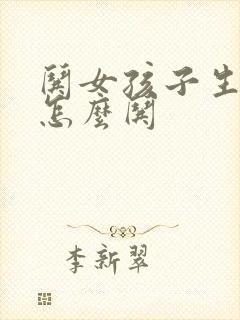 闖女孩子生
怎麼闖
李新翠